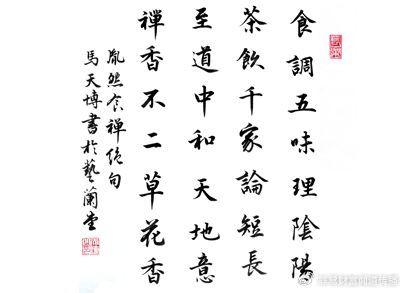 食調五味理陰陽
茶飲千家論短長
至道中和天地意
禪香不二草花香
胤然食禪絕句
馬天博書於藝蘭堂